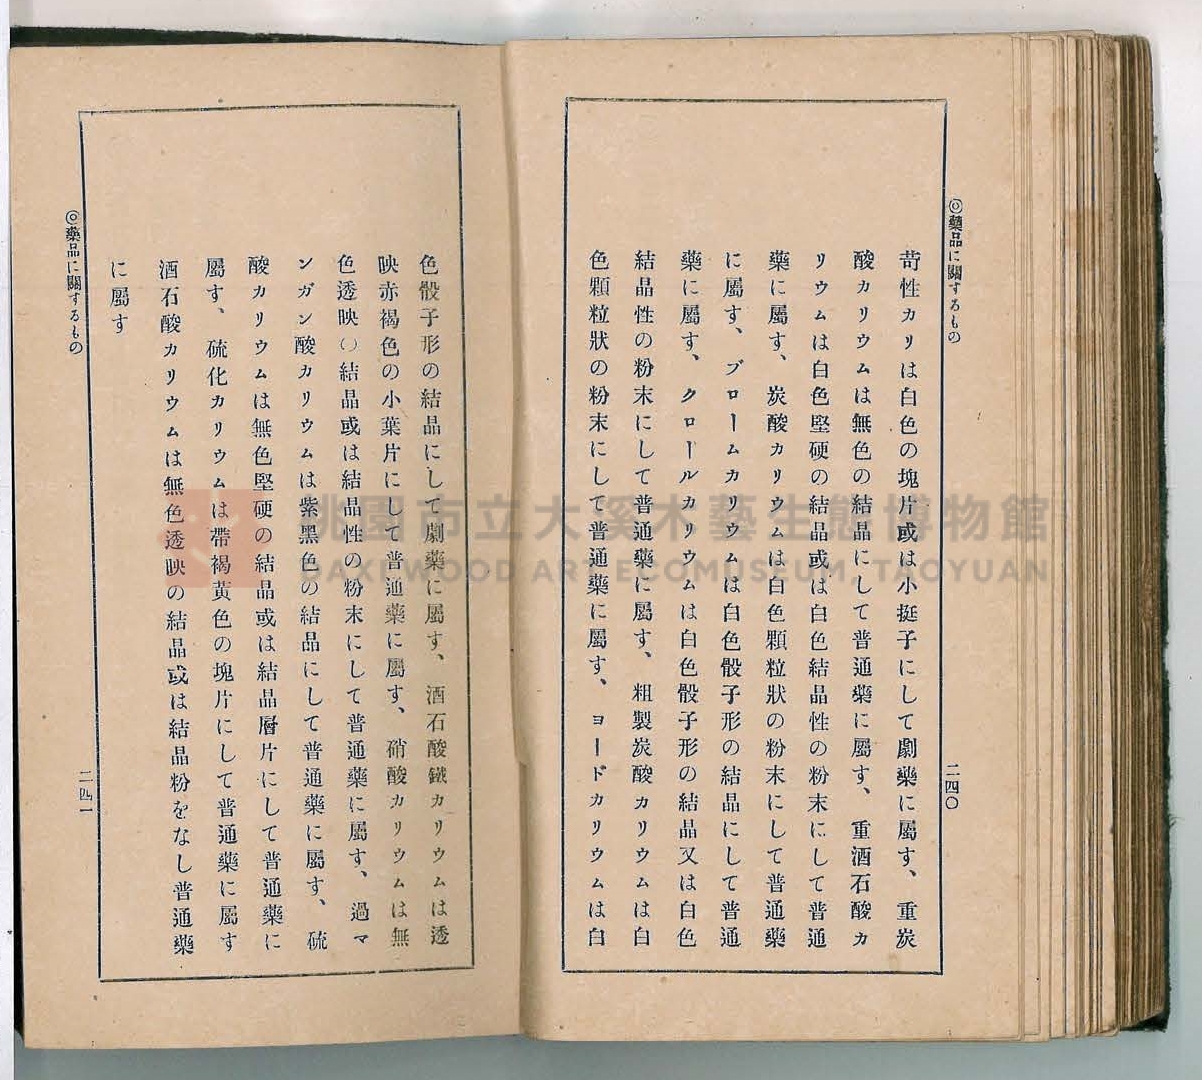 ◎藥品に關するもの
二四〇
苛性カリは白色の塊片或は小挺子にして劇藥に屬す、重炭
酸カリウムは無色の結晶にして普通藥に屬す、重酒石酸カ
リウムは白色堅硬の結晶或は白色結晶性の粉末にして普通
藥に屬す、炭酸カリウムは白色顆粒狀の粉末にして普通藥
に屬す、ブロームカリウムは白色骰子形の結晶にして普通
藥に屬す、クロールカリウムは白色骰子形の結晶又は白色
結晶性の粉末にして普通藥に屬す、粗製炭酸カリウムは白
色顆粒狀の粉末にして普通藥に屬す、ヨードカリウムは白
色骰子形の結晶にして劇藥に屬す、酒石酸鐵カリウムは透
映赤褐色の小葉片にして普通藥に屬す、硝酸カリウムは無
色透映の結晶或は結晶性の粉末にして普通藥に屬す、過マ
ンガン酸カリウムは紫黑色の結晶にして普通藥に屬す、硫
酸カリウムは無色堅硬の結晶或は結晶層片にして普通藥に
屬す、硫化カリウムは帶褐黃色の塊片にして普通藥に屬す
酒石酸カリウムは無色透映の結晶或は結晶粉をなし普通藥
に屬す
◎藥品に關するもの
二四一
桃園市立大溪木藝生態博物館
DAXI WOOD ART ECOMUSEUM, TAOYUAN